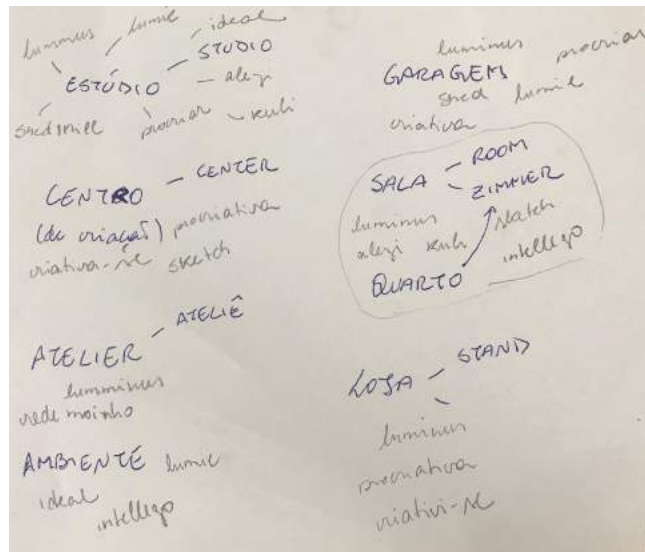 lumminus lumil ideal
ESTÚDIO - STUDIO
- alezi
shedmill procriar - kuli
CENTRO - CENTER
(de criação) procriativa
criativa-se sketch
ATELIER - ATELIÊ
lumminus
rede moinho
AMBIENTE lumil
ideal
intellego
luminus procriar
GARAGEM
shed lumil
criativa
SALA - ROOM
- ZIMMER
luminus
alezi kuli sketch
intellego
QUARTO
LOJA - STAND
luminus
procriativa
criativi-se